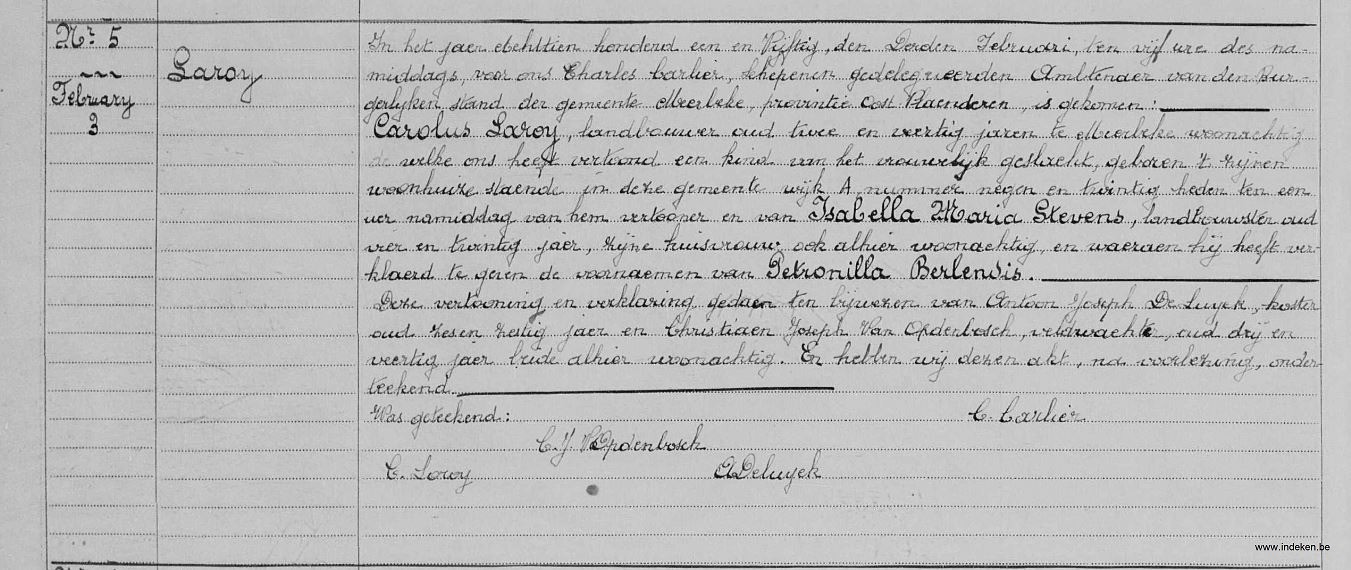 Nr 5
Laroy
February
3
In het jaer Achttien honderd een en Vijftig, den Derden Februari, ten vijf ure des na-
middags, voor ons Charles Carlier, schepenen gedelegueerden Ambtenaer van den Bur-
gerlyken stand der gemeente Meerbeke, provintie Oost Vlaenderen, is gekomen:
Carolus Laroy, landbouwer oud twee en veertig jaren te Meerbeke woonachtig
de welke ons heeft vertoond een kind van het vrouwelijk geslacht, geboren 't zijnen
woonhuize staende in deze gemeente wijk A nummer negen en twintig heden ten een
uer namiddag van hem vertooner en van Isabella Maria Stevens, landbouwster oud
vier en twintig jaer, zijne huisvrouw ook alhier woonachtig, en waeraen hij heeft ver-
klaerd te geven de voornaemen van Petronilla Berlendis.
Deze vertooning en verklaring gedaen ten bijwezen van Antoon Joseph De Luyck, koster
oud zesen zestig jaer en Christiaen Joseph Van Opdenbosch, veldwachte, oud drij en
veertig jaer beide alhier woonachtig. En hebben wij dezen akt, na voorlezing, onder-
teekend.
Was geteekend: C. Carlier
C.J. VOpdenbosch
C. Laroy ADeluyck
www.indeken.be